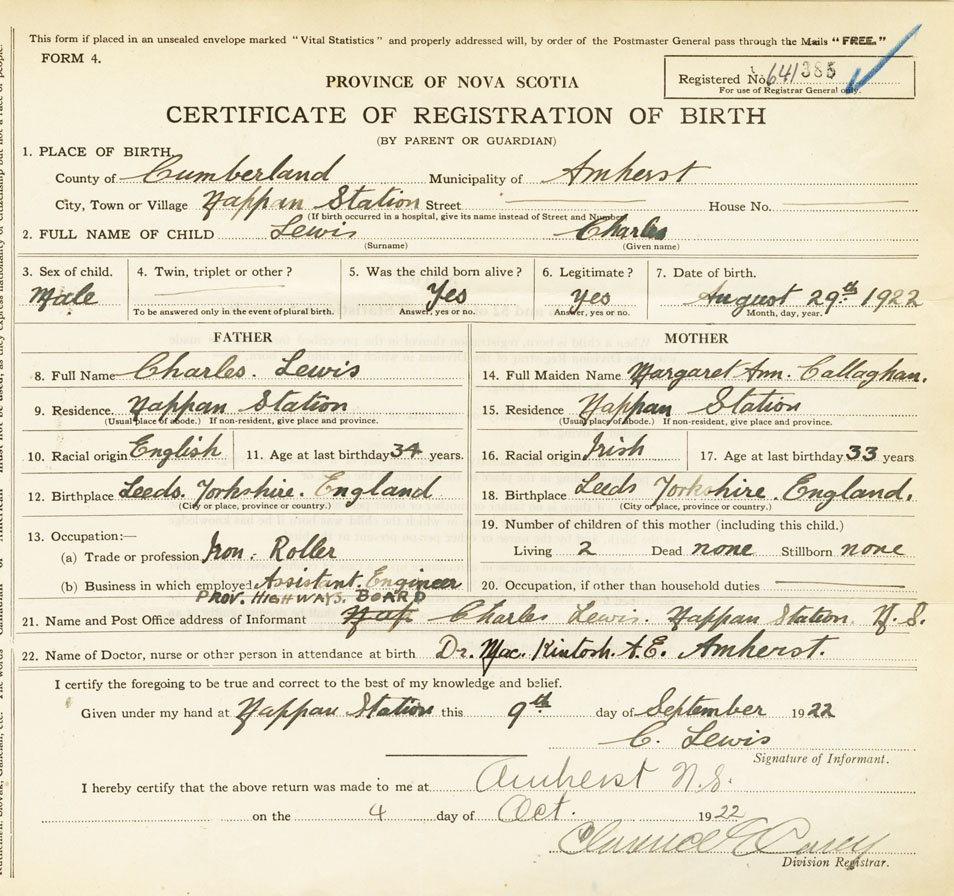 This form if placed in an unsealed envelope marked "Vital Statistics" and properly addressed will, by order of the Postmaster General pass through the Mails "FREE."
FORM 4.
Registered No. 641385
For use of Registrar General only.
PROVINCE OF NOVA SCOTIA
CERTIFICATE OF REGISTRATION OF BIRTH
(BY PARENT OR GUARDIAN)
1. PLACE OF BIRTH
County of Cumberland Municipality of Amherst
City, Town or Village Nappan Station Street House No.
(If birth occurred in a hospital, give its name instead of Street and Number)
2. FULL NAME OF CHILD Lewis Charles
(Surname) (Given name)
3. Sex of child. 4. Twin, triplet or other? 5. Was the child born alive? 6. Legitimate? 7. Date of birth.
Male Yes Yes August 29th 1922
To be answered only in the event of plural birth. Answer, yes or no. Answer, yes or no. Month, day, year.
FATHER MOTHER
8. Full Name Charles. Lewis 14. Full Maiden Name Margaret Ann. Callaghan.
9. Residence. Nappan Station 15. Residence Nappan Station
(Usual place of abode.) If non-resident, give place and province. (Usual place of abode.) If non-resident, give place and province.
10. Racial origin English 11. Age at last birthday 34 years. 16. Racial origin Irish 17. Age at last birthday 33 years
12. Birthplace Leeds. Yorkshire. England 18. Birthplace Leeds Yorkshire. England.
(City or place, province or country.) (City or place, province or country.)
13. Occupation:— 19. Number of children of this mother (including this child.)
(a) Trade or profession Iron. Roller Living 2 Dead none Stillborn none
(b) Business in which employed Assistant. Engineer 20. Occupation, if other than household duties
PROV. HIGHWAYS. BOARD
21. Name and Post Office address of Informant Charles Lewis. Nappan Station. N.S.
22. Name of Doctor, nurse or other person in attendance at birth Dr. Mac. Kintosh. A.E. Amherst.
I certify the foregoing to be true and correct to the best of my knowledge and belief.
Given under my hand at Nappan Station this 9th day of September 1922
C. Lewis
Signature of Informant.
I hereby certify that the above return was made to me at Amherst N.S.
on the 4 day of Oct. 1922
Clarence
Division Registrar.